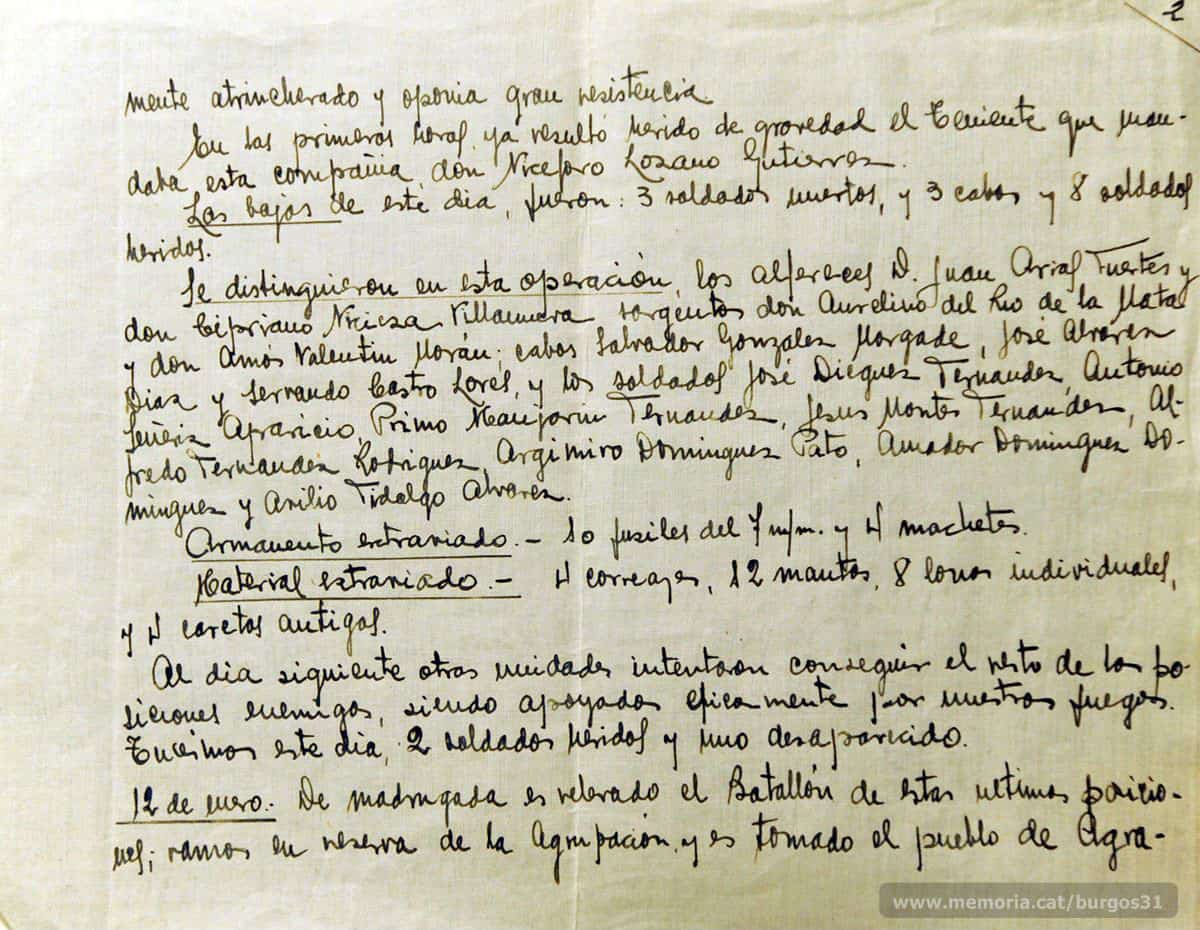 2
mente atrincherado y oponia gran resistencia.
En las primeras horas, ya resultó herido de gravedad el Teniente que man-
daba esta compañia, don Niceforo Lozano Gutierrez.
Las bajas de este dia, fueron: 3 soldados muertos, y 3 cabos y 8 soldados
heridos.
Se distinguieron en esta operación, los alfereces D. Juan Arias Fuertes y
don Cipriano Nicieza Villanueva sargentos don Aurelino del Rio de la Mata
y don Amós Valentin Morán; cabos Salvador Gonzalez Morgade, José Alvarez
Diaz y Serrando Castro Lores, y los soldados José Dieguez Fernandez, Antonio
Aparicio, Primo Manjarin Fernandez, Jesus Montes Fernandez, Al-
fredo Fernandez Rodriguez, Argimiro Dominguez Pato, Amador Dominguez Do-
minguez y Avilio Fidalgo Alvarez.
Armamento extraviado.- 10 fusiles del 7 m/m. y 4 machetes.
Material extraviado.- 4 correajes, 12 mantas, 8 lonas individuales,
y 4 caretas antigas.
Al dia siguiente otras unidades intentaron conseguir el resto de las po-
siciones enemigas, siendo apoyadas eficamente por nuestros fuegos.
Tuvimos este dia, 2 soldados heridos y uno desaparecido.
12 de enero.- De madrugada es relevado el Batallón de estas ultimas posicio-
nes; vamos en reserva de la Agrupación, y es tomado el pueblo de Agra-
www.memoria.cat/burgos31